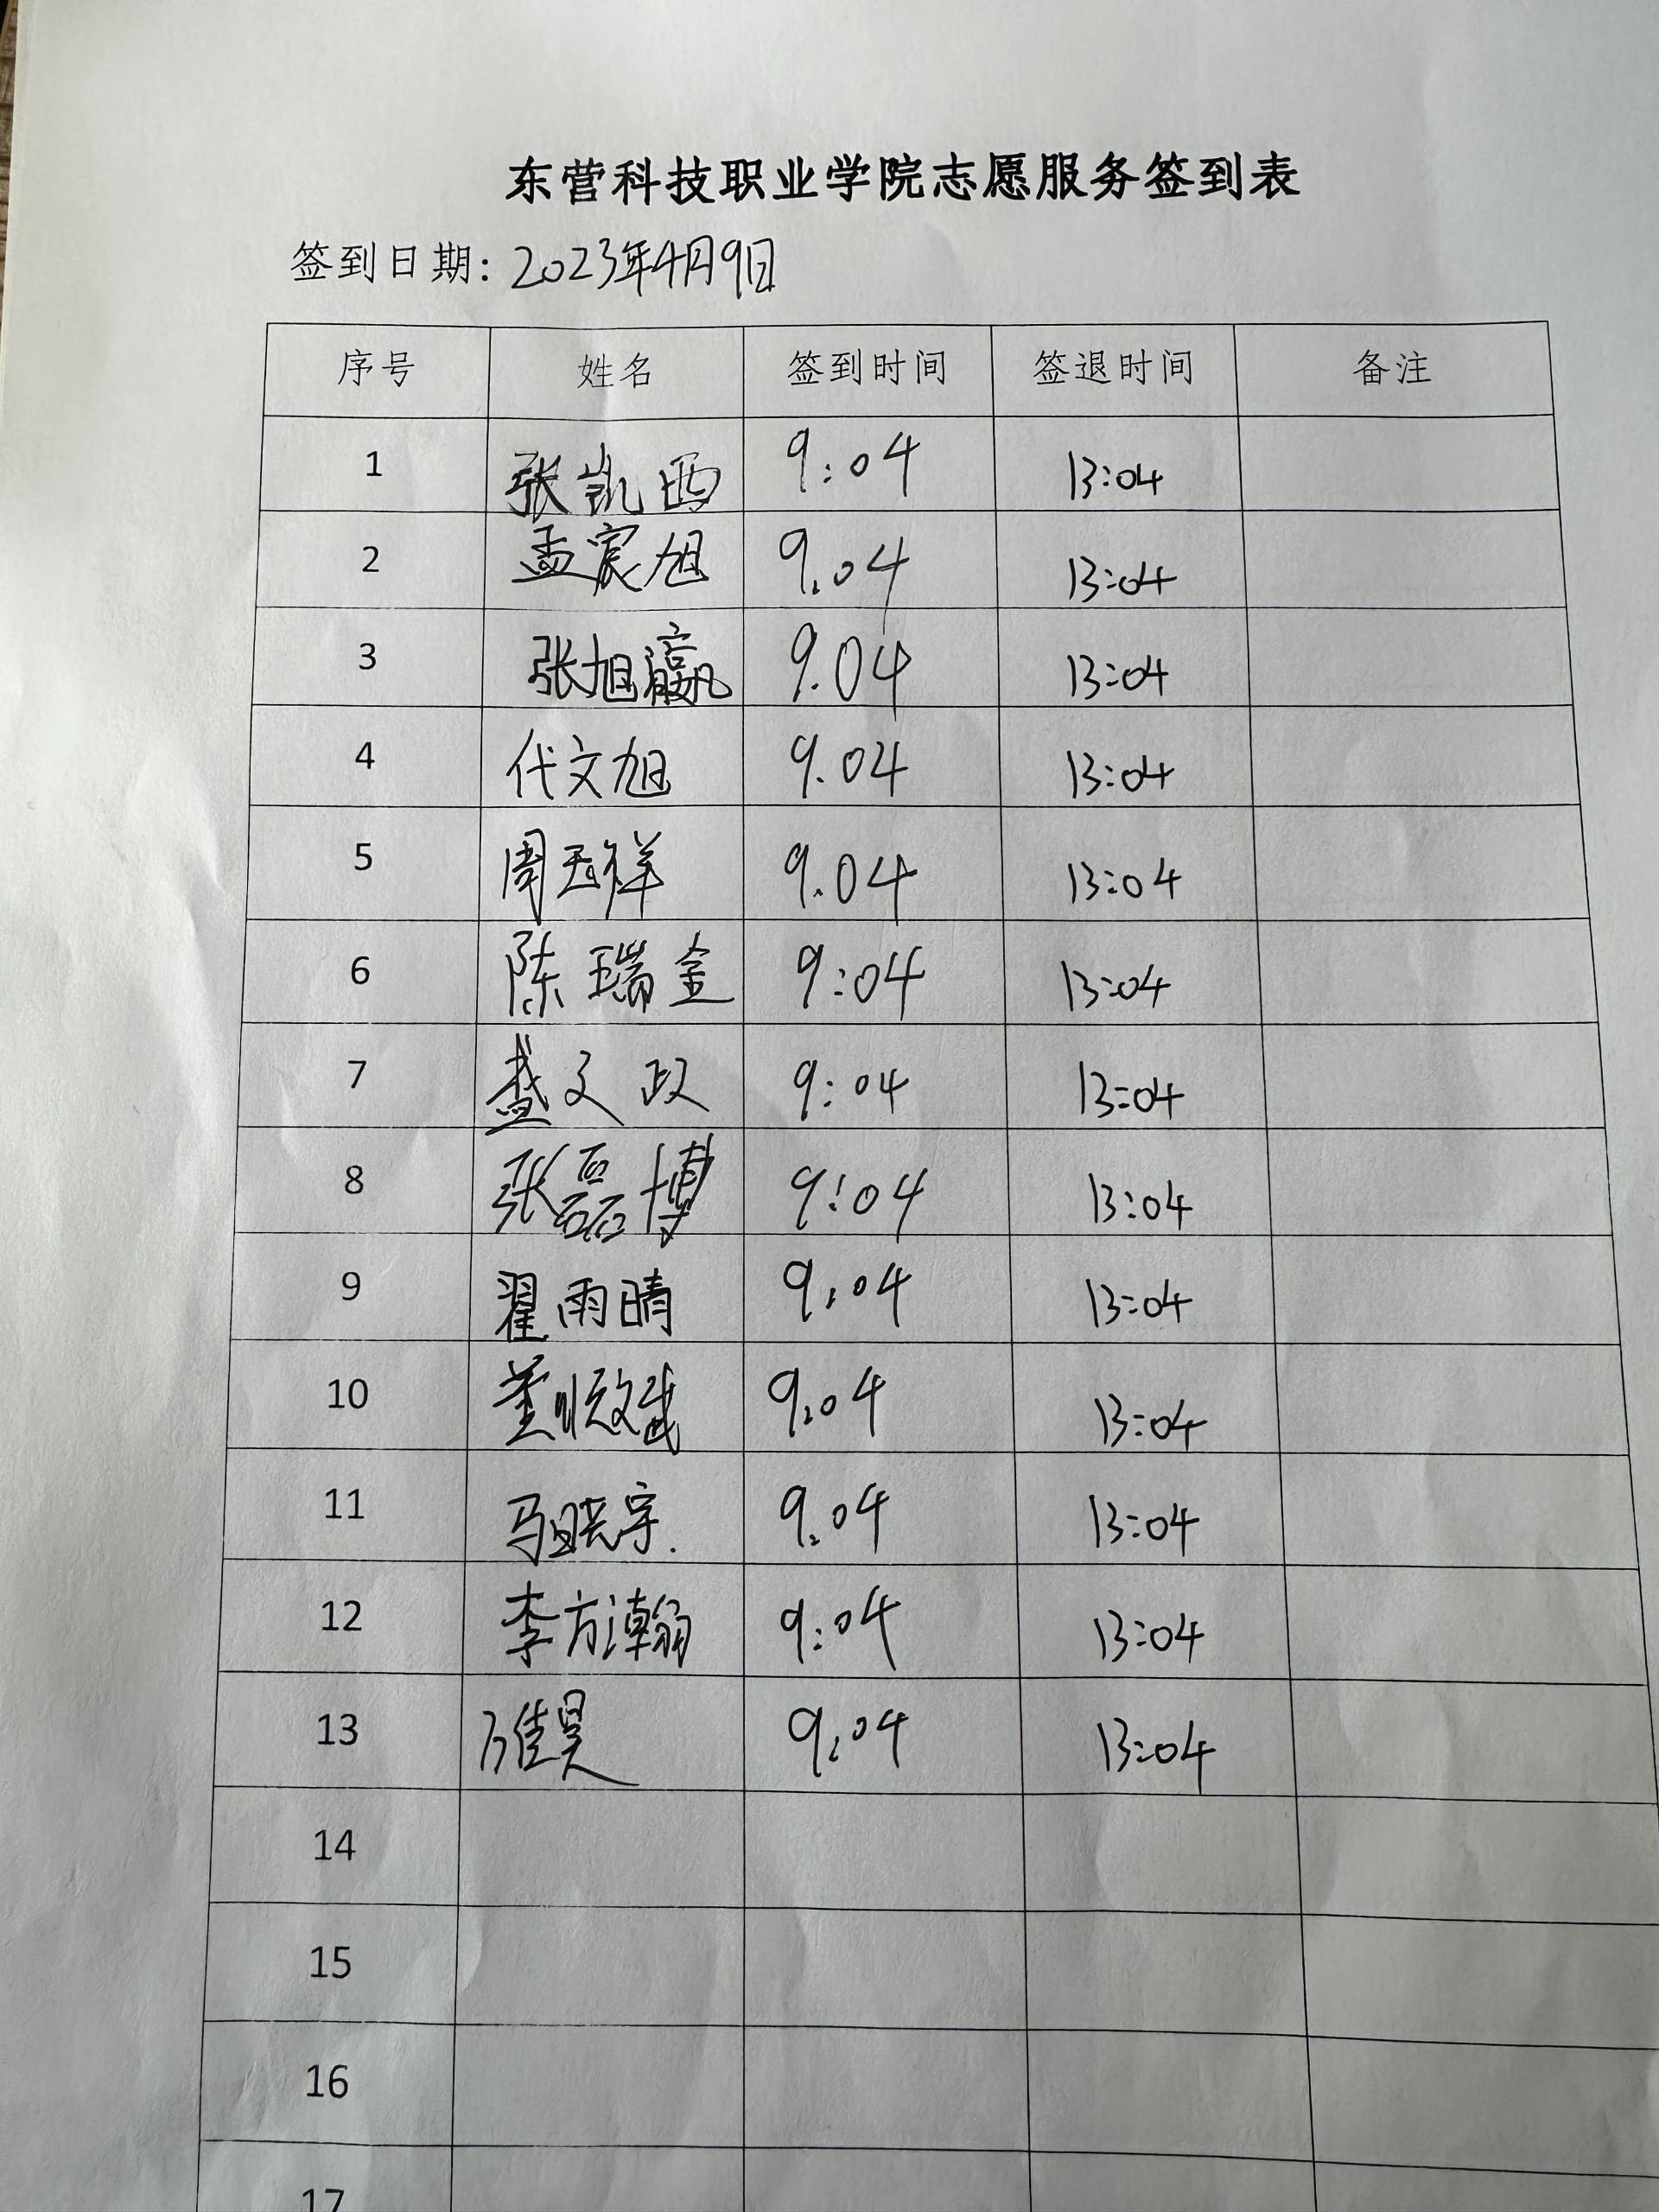 东营科技职业学院志愿服务签到表
签到日期：2023年4月9日
序号 姓名 签到时间 签退时间 备注
1 张凯西 9:04 13:04
2 孟宸旭 9.04 13:04
3 张旭瀛 9.04 13:04
4 代文旭 9.04 13:04
5 周玉祥 9.04 13:04
6 陈瑞金 9:04 13:04
7 盛文政 9:04 13:04
8 张磊博 9:04 13:04
9 翟雨晴 9:04 13:04
10 董顺斌 9:04 13:04
11 马晓宇. 9:04 13:04
12 李方瀚 9:04 13:04
13 万佳昊 9:04 13:04
14
15
16
17